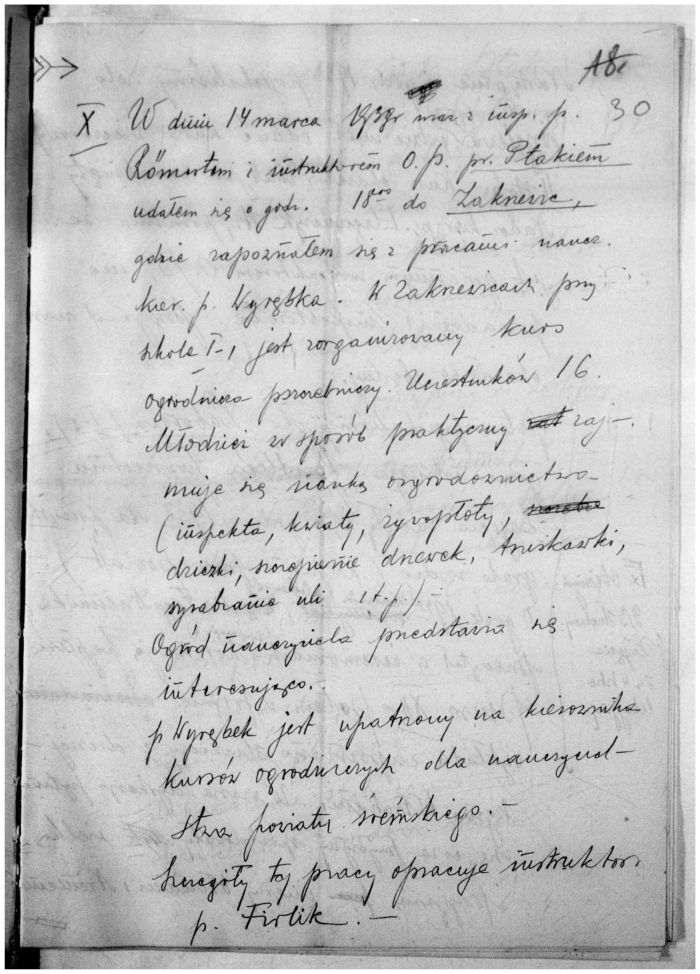 18
30
X W dniu 14 marca 1939r wraz z insp. p.
Römertem i instruktorem O.P. pr. Ptakiem
udałem się o godz. 18 do Zakrzewic,
gdzie zapoznałem się z pracami naucz.
kier. p. Wyrębka. W Zakrzewicach przy
szkole I-, jest zorganizowany kurs
ogrodniczo pszczelniczy. Uczestników 16.
Młodzież w sposób praktyczny zaj-
muje się nauką ongrodownictwa
(inspekta, kwiaty, żywopłoty,
dziczki, szczepienie drzewek, truskawki,
wyrabianie uli i t.p.).-
Ogród nauczyciela przedstawia się
interesująco.-
p Wyrębek jest upatrzony na kierownika
kursów ogrodniczych dla nauczyciel-
stwa powiatu śremskiego.-
Szczegóły tej pracy opracuje instruktor
p. Firlik.-